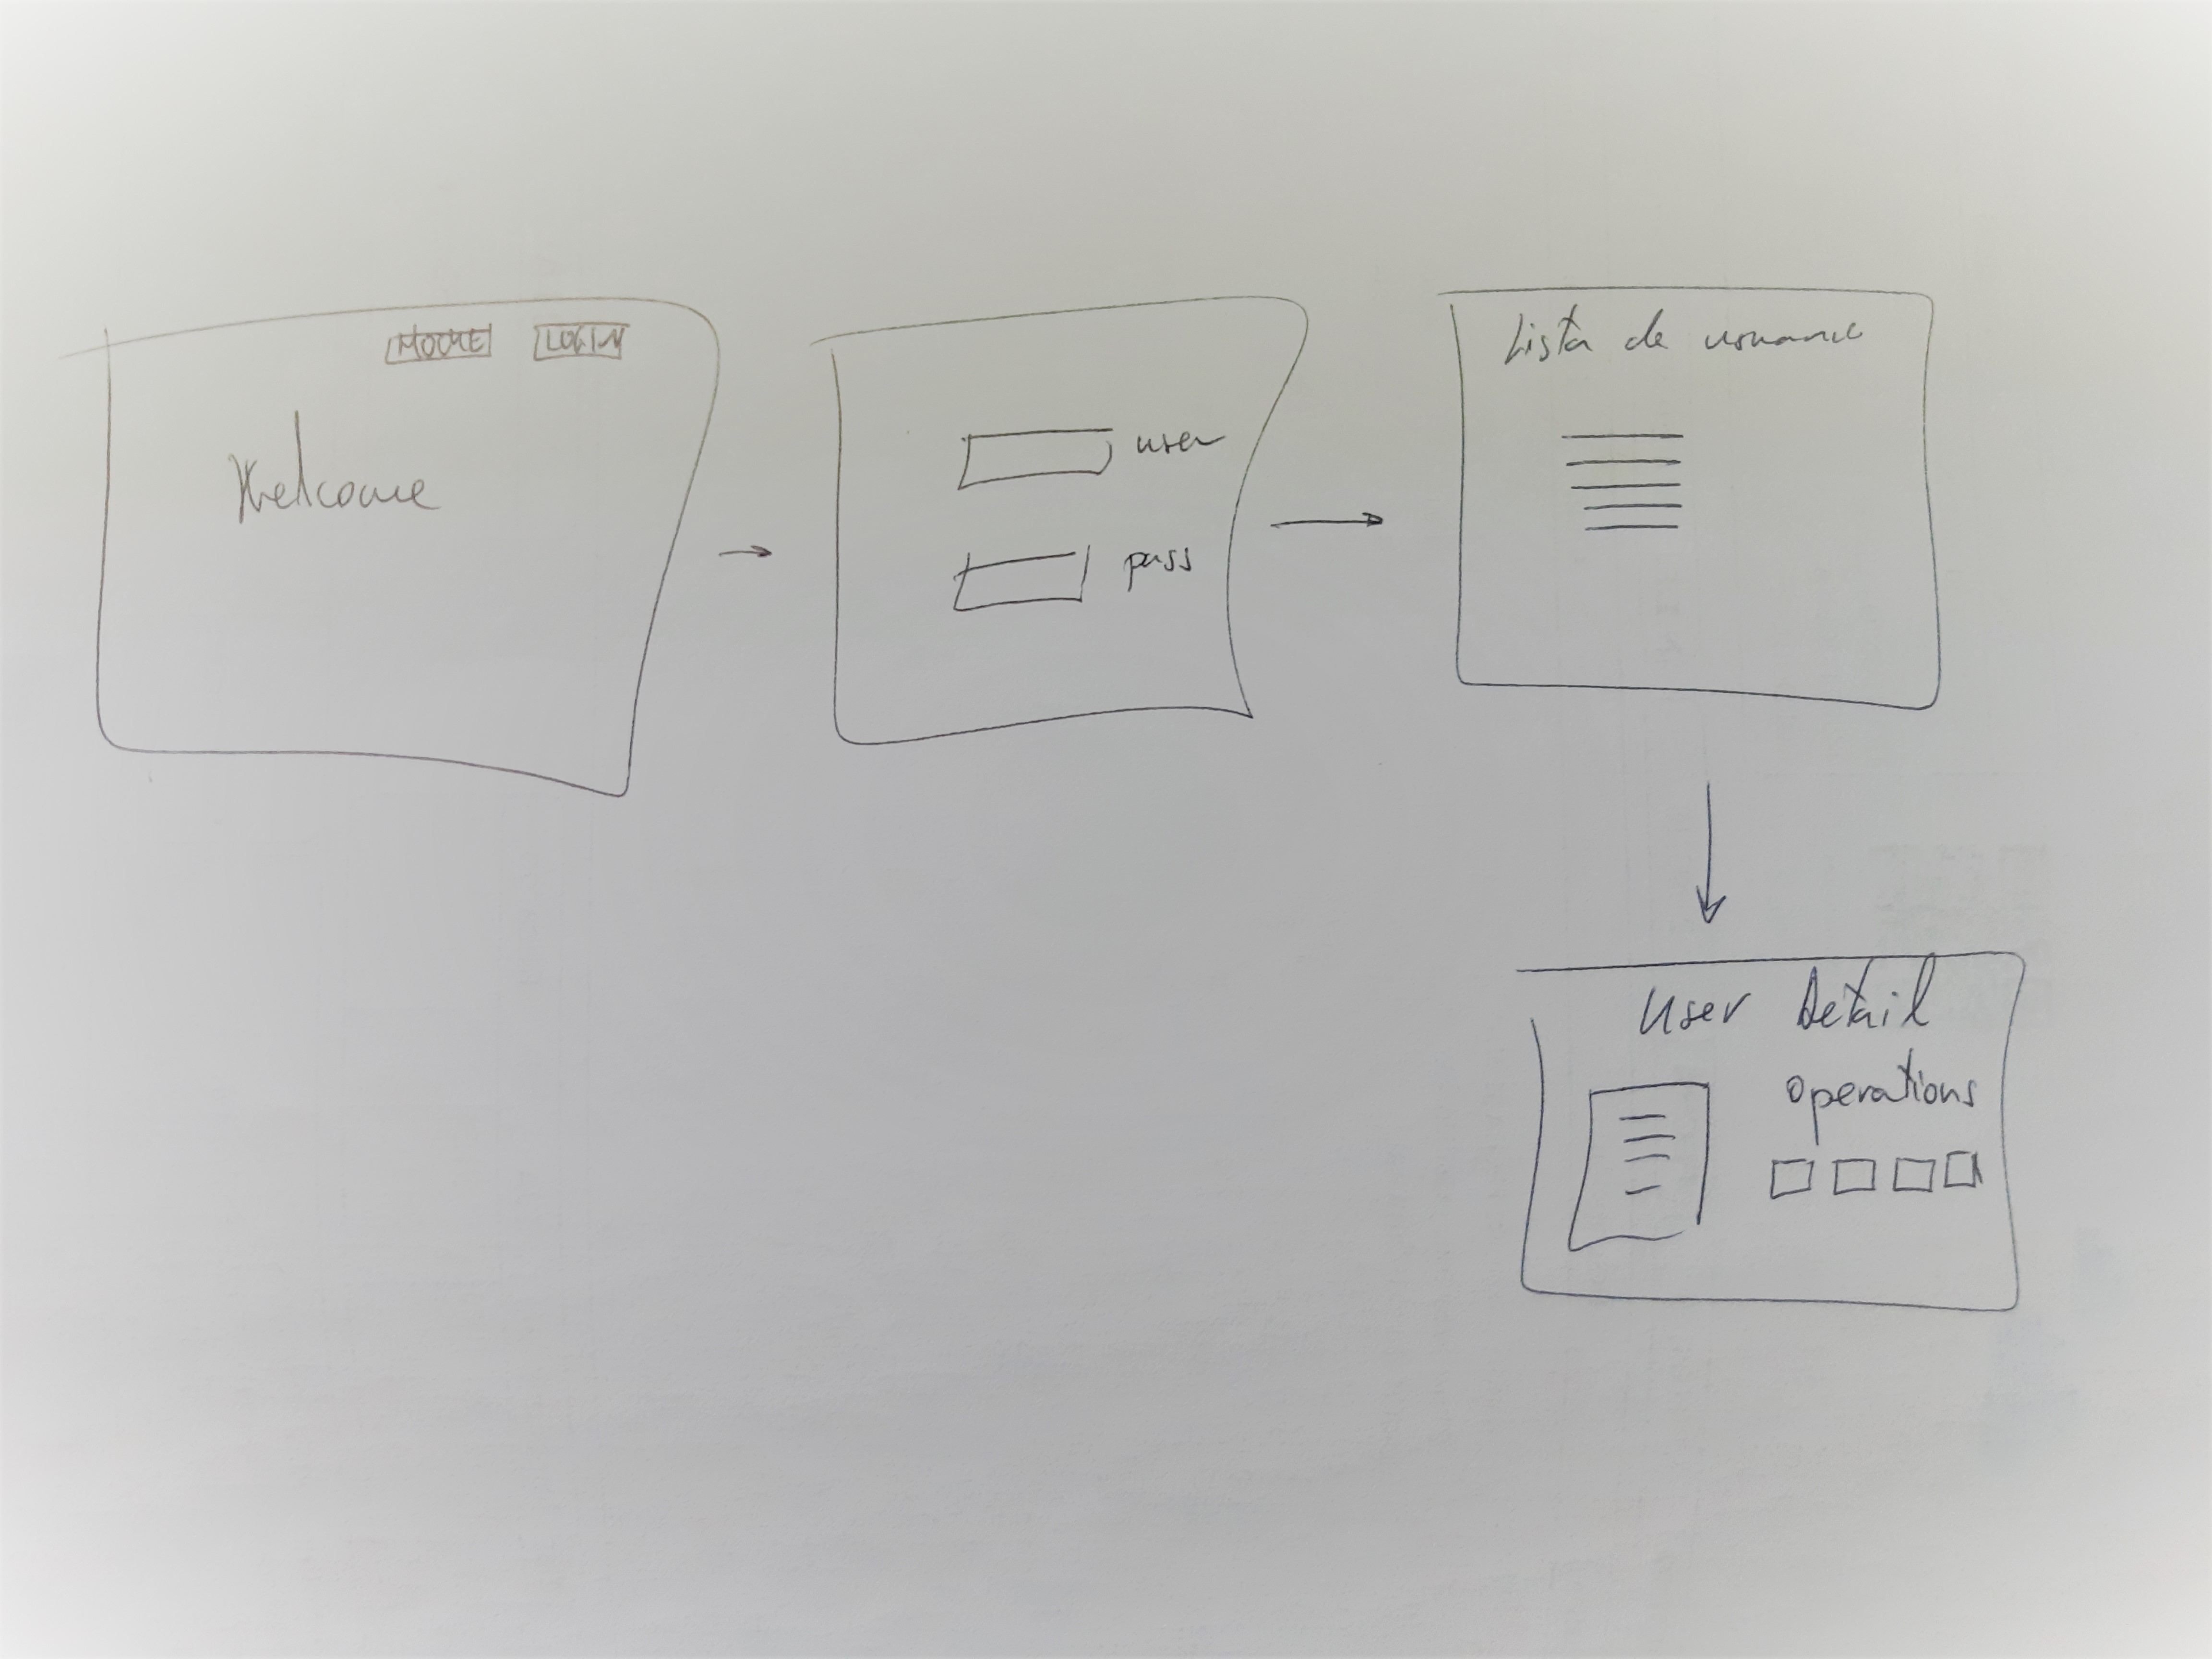 HOME LOGIN
Welcome
user
pass
Lista de usuario
User Detail
operations